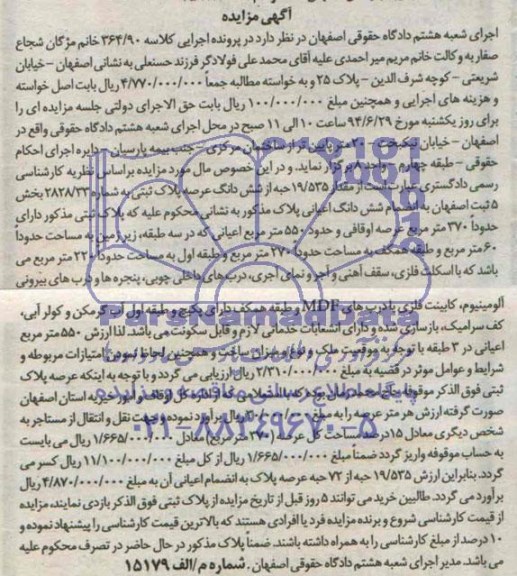 آگهی مزایده
اجرای شعبه هشتم دادگاه حقوقی اصفهان در نظر دارد در پرونده اجرایی کلاسه ۳۶۴/۹۰ خانم مژگان شجاع
صفار به وکالت خانم مریم میر احمدی علیه آقای محمد علی فولادگر فرزند حسنعلی به نشانی اصفهان – خیابان
شریعتی – کوچه شرف الدین – پلاک ۲۵ و به خواسته مطالبه جمعاً ۴/۷۷۰/۰۰۰/۰۰۰ ریال بابت اصل خواسته
و هزینه های اجرایی و همچنین مبلغ ۱۰۰/۰۰۰/۰۰۰ ریال بابت حق الاجرای دولتی جلسه مزایده ای را
برای روز یکشنبه مورخ ۹۴/۶/۲۹ ساعت ۱۰ الی ۱۱ صبح در محل اجرای شعبه هشتم دادگاه حقوقی واقع در
اصفهان – خیابان نیکبخت – ۲۰۰متر پایین تر از ساختمان مرکزی – جنب بیمه پارسیان – دایره اجرای احکام
حقوقی – طبقه چهارم – واحد ۸ برگزار نماید. و در این خصوص مال مورد مزایده براساس نظریه کارشناسی
رسمی دادگستری عبارت است از مقدار ۱۹/۵۳۵ حبه از شش دانگ عرصه پلاک ثبتی به شماره ۲۸۲۸/۳۳ بخش
۵ ثبت اصفهان به انضمام شش دانگ اعیانی پلاک مذکور به نشانی محکوم علیه که پلاک ثبتی مذکور دارای
حدوداً ۳۷۰ متر مربع عرصه اوقافی و حدود ۵۵۰ متر مربع اعیانی که در سه طبقه، زیرزمین به مساحت حدوداً
۶۰ متر مربع و طبقه همکف به مساحت حدوداً ۲۷۰ متر مربع و طبقه اول به مساحت حدوداً ۲۲۰ متر مربع می
باشد که با اسکلت فلزی، سقف آهنی و آجر و نمای آجری، درب های داخلی چوبی، پنجره ها و درب های بیرونی
آلومینیوم، کابینت فلزی با درب های MDF و طبقه همکف دارای پکیج و طبقه اول آب گرمکن و کولر آبی،
کف سرامیک، بازسازی شده و دارای انشعابات خدماتی لازم و قابل سکونت می باشد. لذا ارزش ۵۵۰ متر مربع
اعیانی در ۳ طبقه با توجه به موقعیت ملک و نوع و میزان ساخت و همچنین لحاظ نمودن امتیازات مربوطه و
شرایط و عوامل موثر در قضیه به مبلغ ۲/۳۱۰/۰۰۰/۰۰۰ ریال ارزیابی می گردد و با توجه به اینکه عرصه پلاک
ثبتی فوق الذکر موقوفه می باشد که با استعلام از اداره کل اوقاف و امور خیریه استان اصفهان
صورت گرفته ارزش هر متر عرصه را به مبلغ ۳۰/۰۰۰/۰۰۰ ریال برآورد نموده و جهت نقل و انتقال از مستاجر به
شخص دیگری معادل ۱۵درصد مساحت کل عرصه (۳۷۰ متر مربع) معادل ۱/۶۶۵/۰۰۰/۰۰۰ ریال می بایست
به حساب موقوفه واریز گردد ضمناً مبلغ ۱/۶۶۵/۰۰۰/۰۰۰ ریال از کل مبلغ ۱۱/۱۰۰/۰۰۰/۰۰۰ ریال کسر می
گردد. بنابراین ارزش ۱۹/۵۳۵ حبه از ۷۲ حبه عرصه پلاک به انضمام اعیانی آن به مبلغ ۴/۸۷۰/۰۰۰/۰۰۰ ریال
برآورد می گردد. طالبین خرید می توانند ۵ روز قبل از تاریخ مزایده از پلاک ثبتی فوق الذکر بازدید نمایند، مزایده
از قیمت کارشناسی شروع و برنده مزایده فرد یا افرادی هستند که بالاترین قیمت کارشناسی را پیشنهاد نموده و
۱۰ درصد از مبلغ کارشناسی را به همراه داشته باشند. ضمناً پلاک مذکور در حال حاضر در تصرف محکوم علیه
می باشد. مدیر اجرای شعبه هشتم دادگاه حقوقی اصفهان . شماره م/الف ۱۵۱۷۹
ParsNamadData
۰۲۱-۸۸۳۴۹۶۷۰-۵